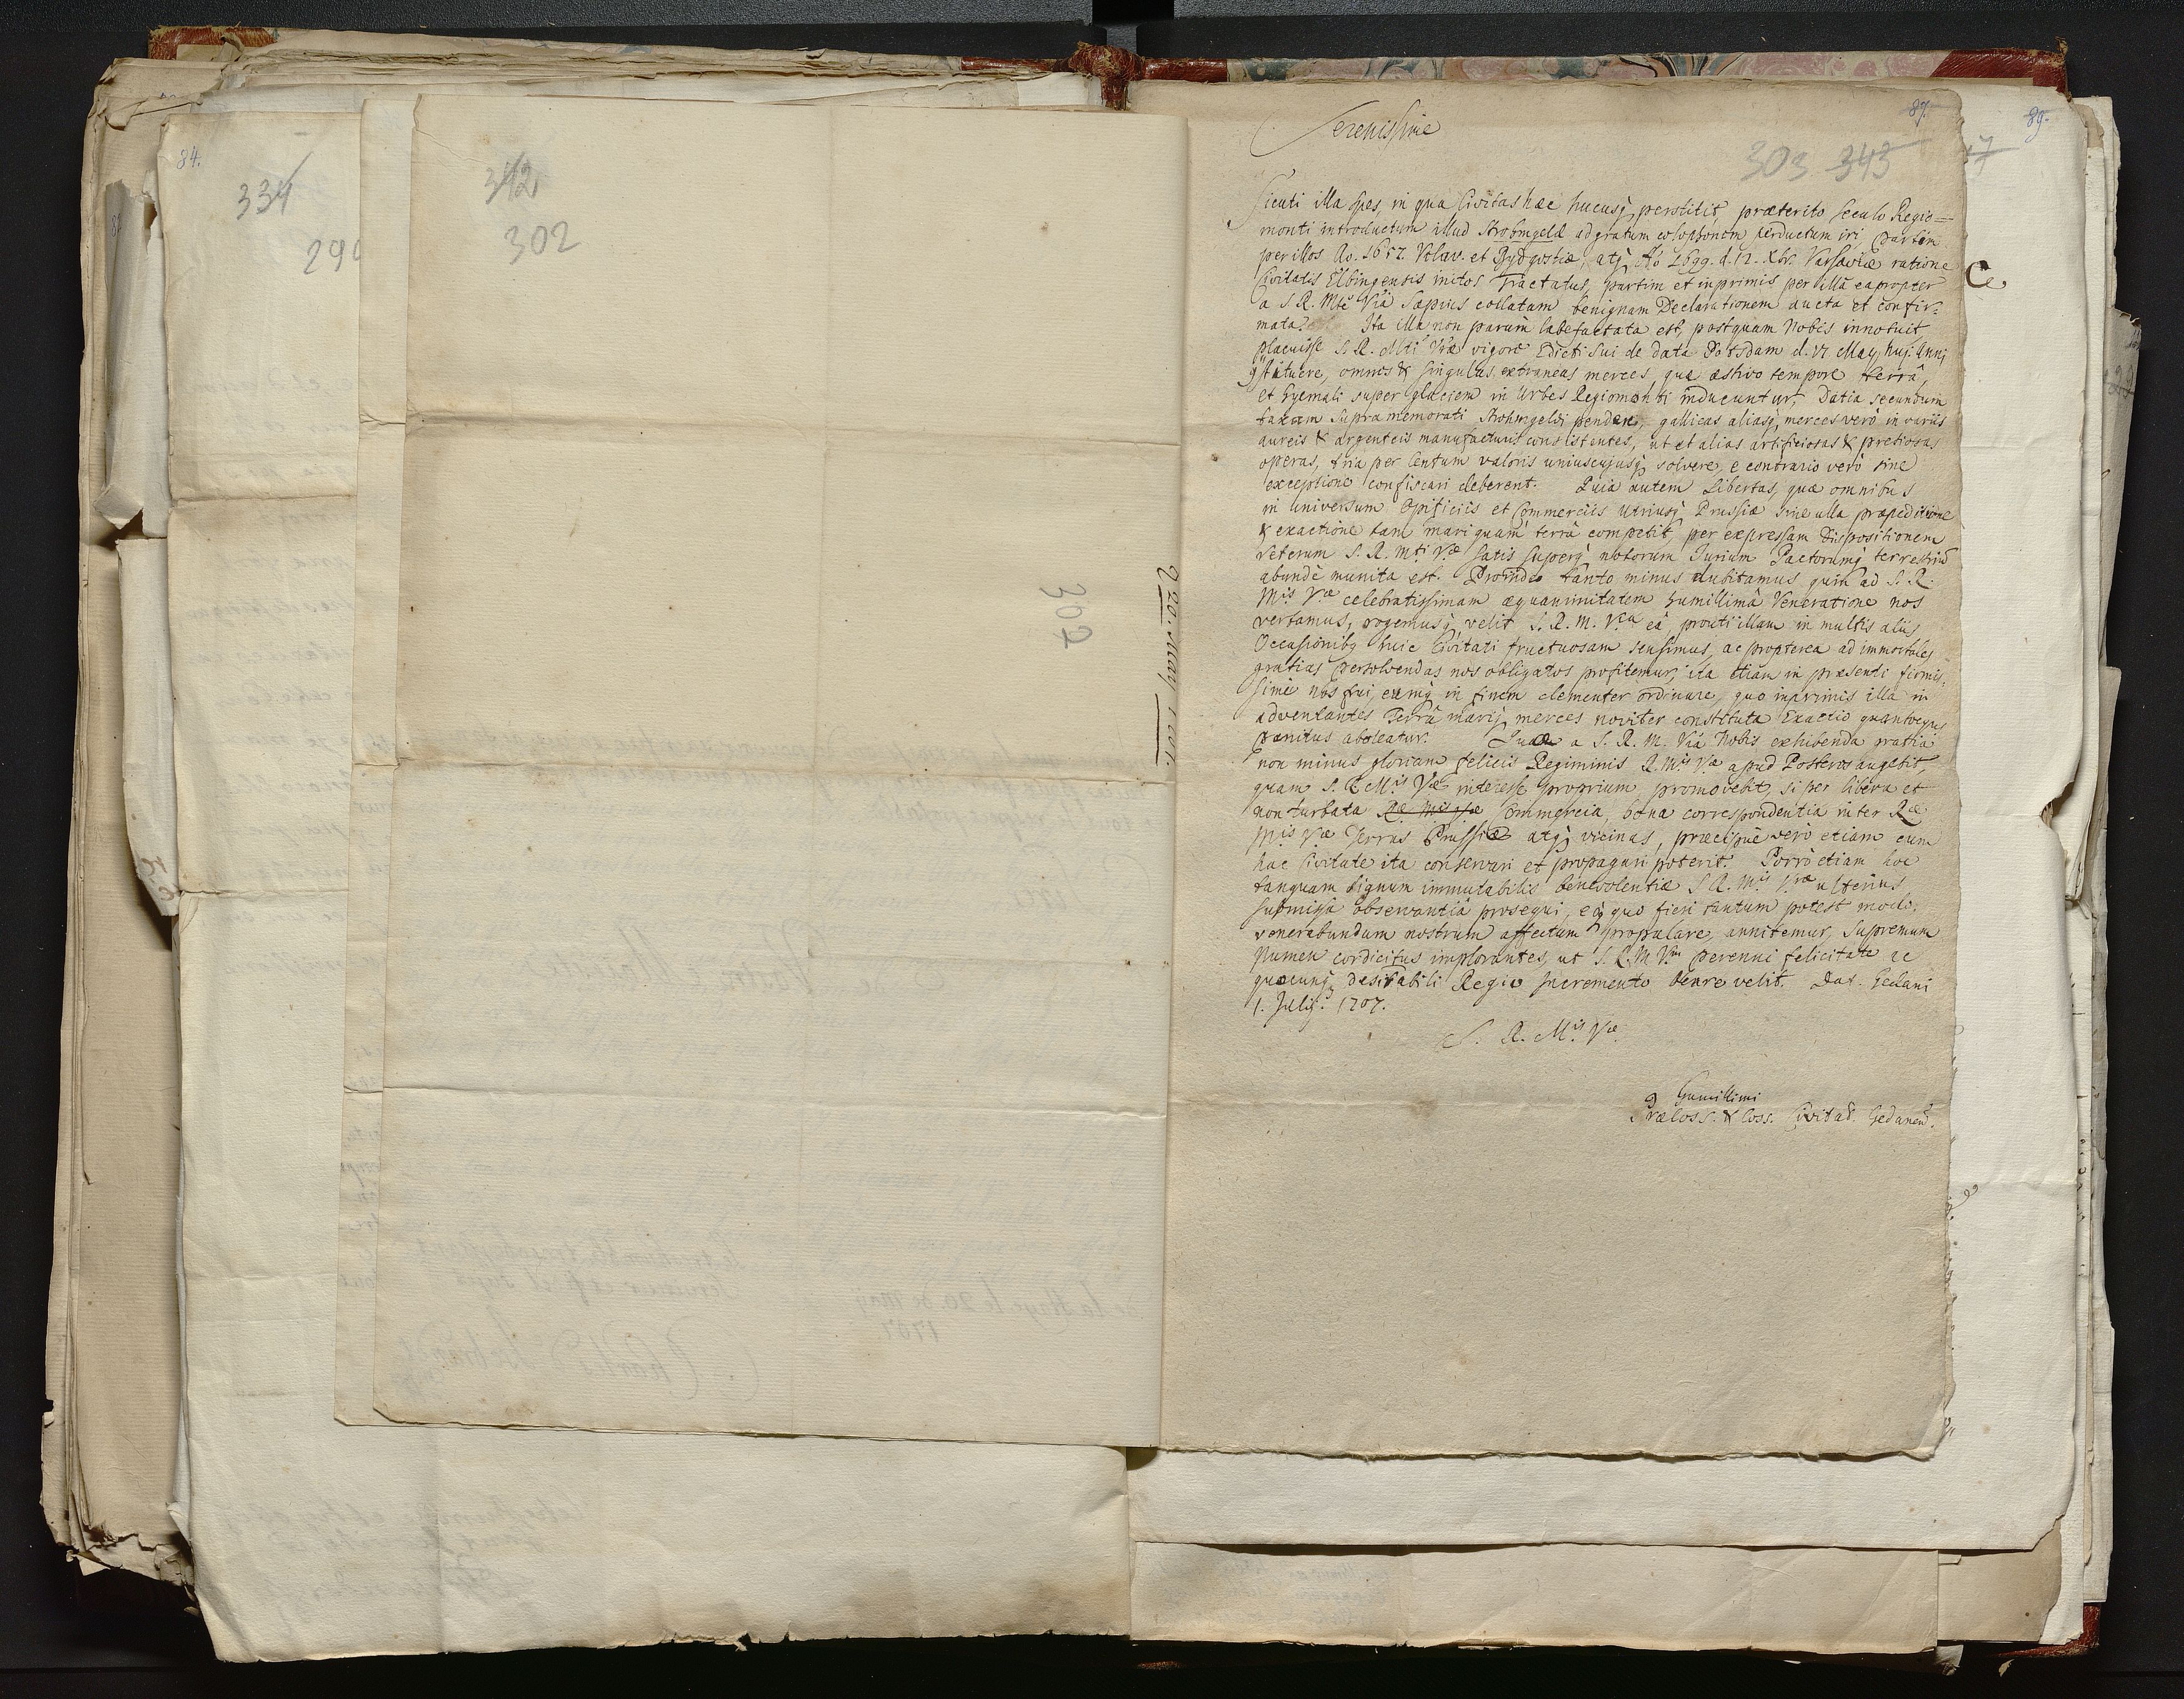 84.
334
290
342
302
302
d. 20. May 1707.
87.
89.
303 343
Serenissime
Sicuti illa spes, in qua Civitas hæc hucusq; perstitit, præterito seculo Regio=
monti introductum illud Strohmgeld ad gratum colophonem perductum iri, partim
per illos Ao. 1657. Velav. et Bydgostiæ, atq; Ao 1699. d. 12. Xbr. Varsaviæ ratione
Civitatis Elbingensis initos Tractatus, partim et inprimis per illã eapropter
a S. R. Mte Vrã sæpius collatam benignam Declarationem aucta et confir=
mata. Ita illa non parum labefactata est, postquam Nobis innotuit
placuisse S. R. Mti Vræ vigore Edicti sui de data Potsdam d. 17 May huj. Anni
9stituere, omnes & singulas extraneas merces, quæ æstivo tempore terrâ,
et hyemali super glaciem in Urbes Regiomonti inducuntur, Datia secundum
taxam supramemorati Strohmgeldi pendere, gallicas aliasq; merces verò in variis
aureis & argenteis manufacturis consistentes, ut et alias artificiosas & pretiosas
operas, tria per Centum valoris uniuscujusq; solvere, e contrario verò sine
exceptione confiscari deberent. Quia autem Libertas, quæ omnibus
in universum Opificiis et Commerciis utriusq; Prussiæ sine ulla præpeditione
& exactione tam mari quam terrâ competit, per expressam Dispositionem
veterum S. R. Mti Væ satis superq; notorum Jurium Pactorumq; terrestriũ
abundè munita est. Proinde tanto minus dubitamus quin ad S. R.
Mtis Væ celebratissimam æquanimitatem humillimâ Veneratione nos
vertamus, rogemusq; velit S. R. M. Vra eâ, prouti illam in multis aliis
Occasionibq huic Civitati fructuosam sensimus, ac propterea ad immortales
gratias persolvendas nos obligatos profitemur, ita etiam in præsenti firmis=
simè nos frui, eumq; in finem clementer ordinare, quo inprimis illa in
adventantes Terrâ mariq; merces noviter constituta Exactio quantocyus
penitus aboleatur. Quæ a S. R. M. Vrâ Nobis exhibenda gratia
non minus gloriam felicis Regiminis R. Mtis Væ apud Posteros augebit,
quam S. R. Mtis Væ interesse proprium promovebit, si per libera et
non turbata Ræ Mtis Væ Commercia, bona correspondentia inter Ræ
Mtis Væ Terras Prussiæ atq; vicinas, præcipuè vero etiam cum
hac Civitate ita conservari et propagari poterit. Porrò etiam hoc
tanquam signum immutabilis benevolentiæ S. R. Mtis Vræ ulterius
submissa observantiâ prosequi, eoq; quo fieri tantum potest modo,
venerabundum nostrum affectum propalare, annitemur, supremum
Numen cordicitus implorantes, ut S. R. M. Vm perenni felicitate ac
quocunq; desirabili Regio incremento beare velit. Dat. Gedani
1. Julij. 1707.
S. R. Mtis Væ.
humillimi
Præcoss. & Coss. Civitat. Gedanens.